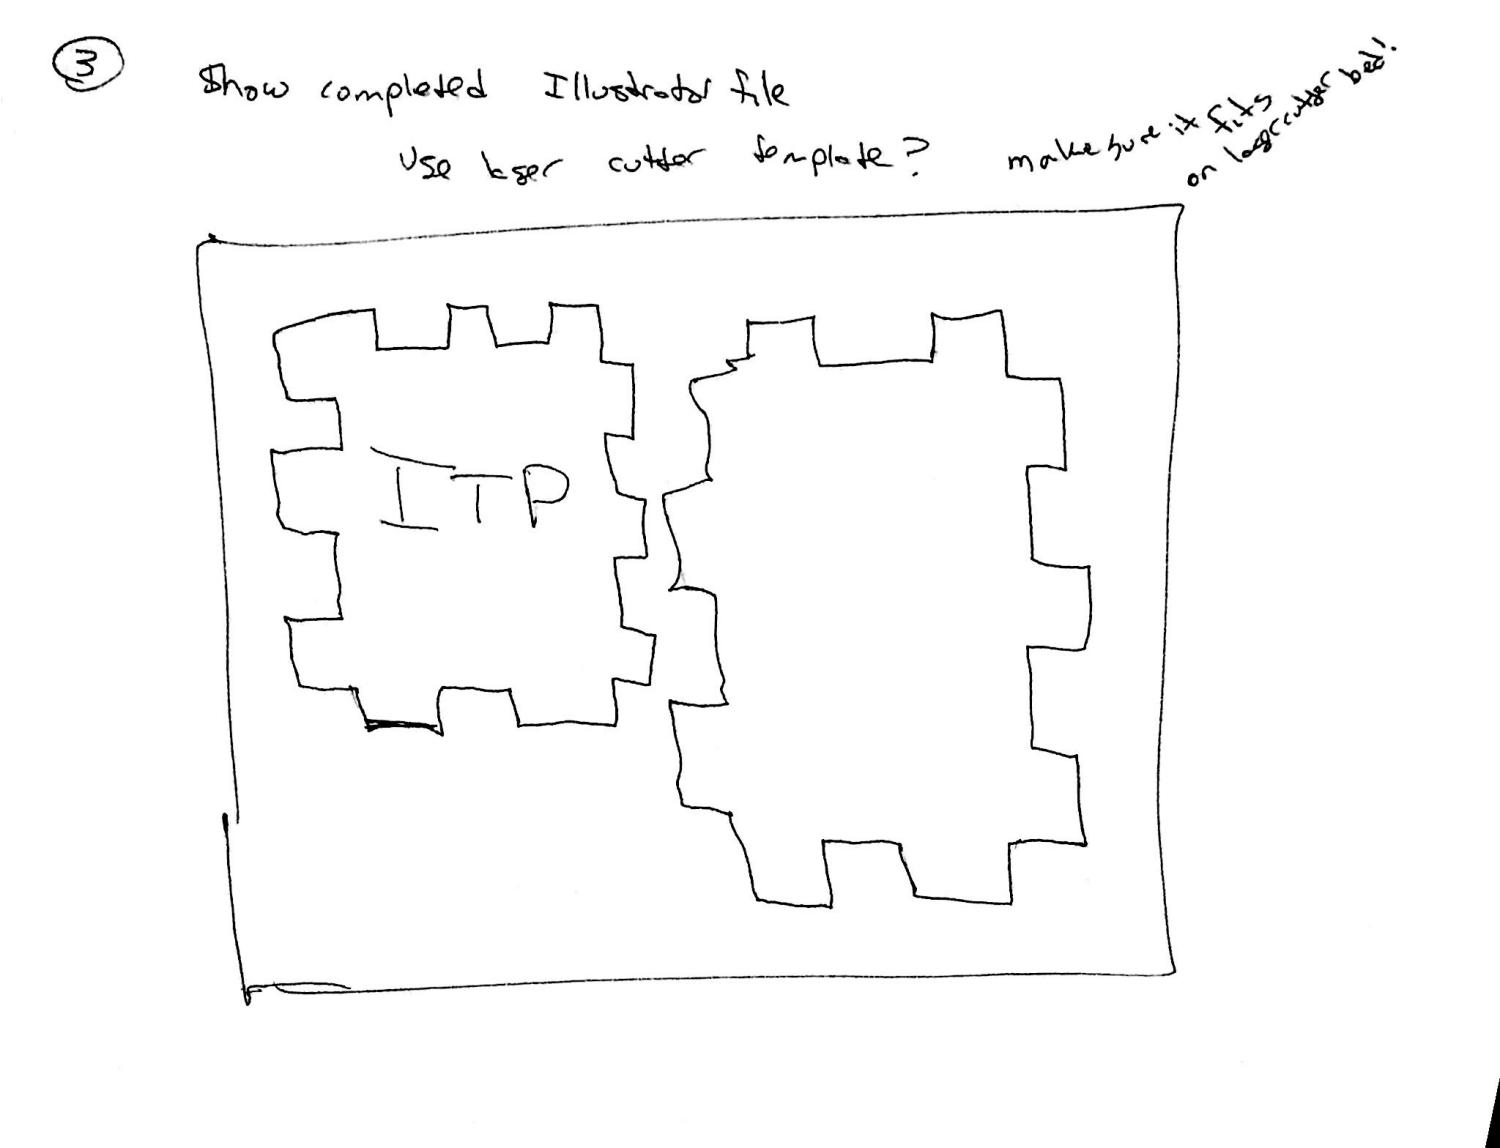 3
Show completed Illustrator file
Use laser cutter template?
make sure it fits
on laser cutter bed!
ITP